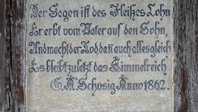 Der Segen ist des Fleißes Lohn
Er erbt vom Vater auf den Sohn,
Und macht der Tod dann auch alles gleich
Es bleibt zuletzt das Himmelreich
G. A. Schosig Anno 1862.